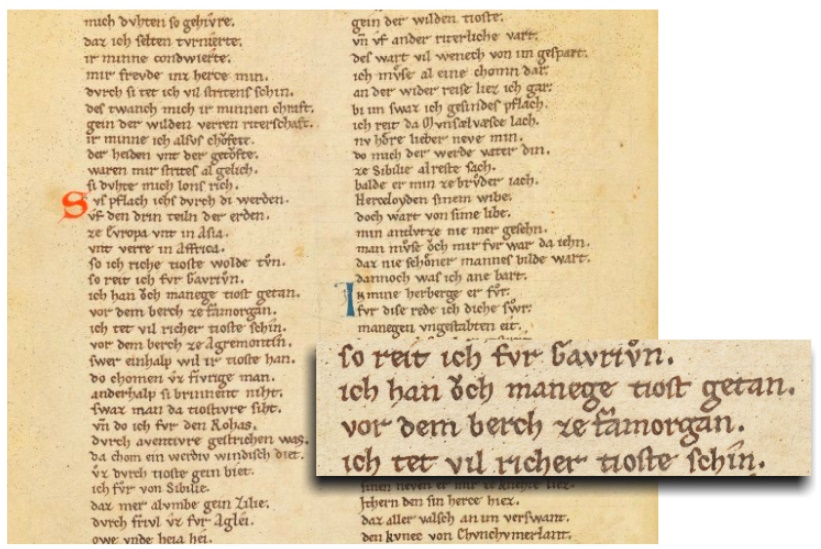 mich dvhten so gehivre.
daz ich selten tvrnierte.
ir minne condwierte.
mir frevde inz herce min.
dvrch si tet ich vil stritens schin.
des twanch mich ir minnen chraft.
gein der wilden verren riterschaft.
ir minne ich alsvs chŏfett.
der heiden vnt der getŏfte.
waren mir strites al gelich.
si dvhte mich lons rich.
Svs pflach ichs dvrch di werden.
vf den drin teiln der erden.
ze Evropa vnt in Asia.
vnt verre in Affrica.
so ich riche tioste wolde tvͦn.
so reit ich fvr Gavrivͦn.
ich han ŏch manege tiost getan.
vor dem berch ze fâmorgan.
ich tet vil richer tioste schin.
vor dem berch ze Agremontin.
swer einhalp wil ir tioste han.
do chomen vz fivrige man.
anderhalp si brinnent niht.
swaz man da tiostivre siht.
vn̄ do ich fvr den Rohas.
dvrch aventivre gestrichen was.
da chom ein werdiv windisch diet.
vz dvrch tioste gein biet.
ich fvͦr von Sibilie.
daz mer alvmbe gein Zilie.
dvrch frivl vz fvr Aglei.
owe vnde heia hei.
gein der wilden tioste.
vn̄ vf ander riterliche vart.
des wart vil wenech von im gespart.
ich mvͦse al eine chomn dar.
an der wider reise liez ich gar.
bi im swaz ich gesindes pflach.
ich reit da Mvnsælvæsce lach.
nv hŏre lieber neve min.
do mich der werde vater din.
ze Sibilie alreste sach.
balde er min ze brvͦder iach.
Herceloyden sinem wibe.
doch wart von sime libe.
min antvtze nie mer gesehn.
man mvͦse ŏch mir fvr war da iehn.
daz nie schŏner mannes bilde wart.
dannoch was ich ane bart.
In mine herberge er fvͦr.
fvr dise rede ich diche swvͦr.
manegen vngestabten eit.
so reit ich fvr Gavrivͦn.
ich han ŏch manege tiost getan.
vor dem berch ze fâmorgan.
ich tet vil richer tioste schin.
sinen neven er mir ze knehte liez.
Ithern den sin herce hiez.
daz aller valsch an im verswant.
den kvnec von Chvnchvmerlant.